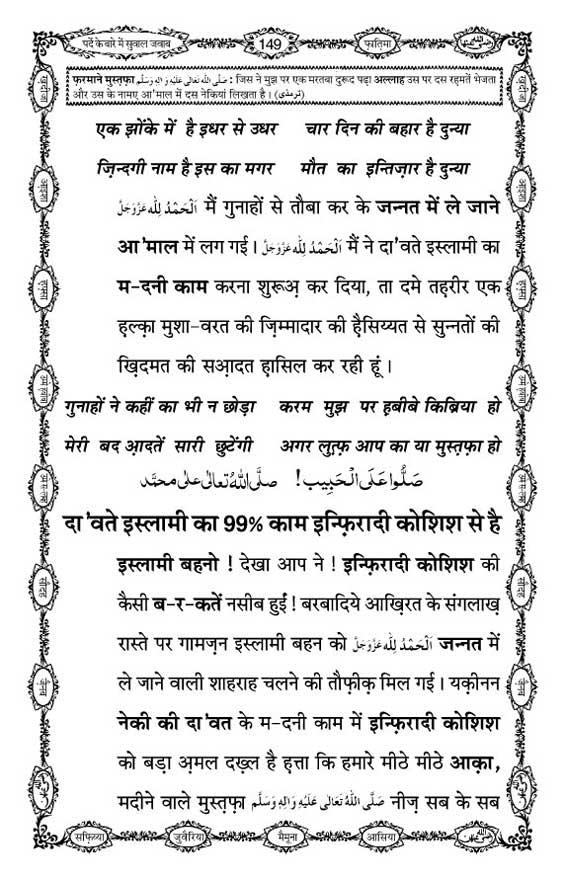 पर्दे के बारे में सुवाल जवाब 149 फ़ातिमा
फ़रमाने मुस्तफ़ा صَلَّى اللهُ تَعَالٰى عَلَيْهِ وَاٰلِهٖ وَسَلَّم : जिस ने मुझ पर एक मरतबा दुरूद पढ़ा अल्लाह उस पर दस रहमतें भेजता
और उस के नामए आ'माल में दस नेकियां लिखता है। (ترمذی)
एक झोंके में है इधर से उधर चार दिन की बहार है दुन्या
ज़िन्दगी नाम है इस का मगर मौत का इन्तिज़ार है दुन्या
اَلْحَمْدُ لِلّٰه عَزَّوَجَلَّ मैं गुनाहों से तौबा कर के जन्नत में ले जाने
आ'माल में लग गई। اَلْحَمْدُ لِلّٰه عَزَّوَجَلَّ मैं ने दा'वते इस्लामी का
म-दनी काम करना शुरूअ़ कर दिया, ता दमे तहरीर एक
हल्क़ा मुशा-वरत की ज़िम्मादार की हैसिय्यत से सुन्नतों की
ख़िदमत की सआ़दत हासिल कर रही हूं।
गुनाहों ने कहीं का भी न छोड़ा करम मुझ पर ह़बीबे किब्रिया हो
मेरी बद आ़दतें सारी छुटेंगी अगर लुत्फ़ आप का या मुस्तफ़ा हो
صَلُّوا عَلَى الْحَبِيب! صلَّى اللهُ تعالٰى على محمَّد
दा'वते इस्लामी का 99% काम इन्फ़िरादी कोशिश से है
इस्लामी बहनो ! देखा आप ने ! इन्फ़िरादी कोशिश की
कैसी ब-र-कतें नसीब हुईं ! बरबादिये आख़िरत के संगलाख़
रास्ते पर गामज़न इस्लामी बहन को اَلْحَمْدُ لِلّٰه عَزَّوَجَلَّ जन्नत में
ले जाने वाली शाहराह चलने की तौफ़ीक़ मिल गई। यक़ीनन
नेकी की दा'वत के म-दनी काम में इन्फ़िरादी कोशिश
को बड़ा अ़मल दख़्ल है ह़त्ता कि हमारे मीठे मीठे आक़ा,
मदीने वाले मुस्तफ़ा صَلَّى اللهُ تَعَالٰى عَلَيْهِ وَاٰلِهٖ وَسَلَّم नीज़ सब के सब
सफ़िय्या जुवैरिया मैमूना आसिया